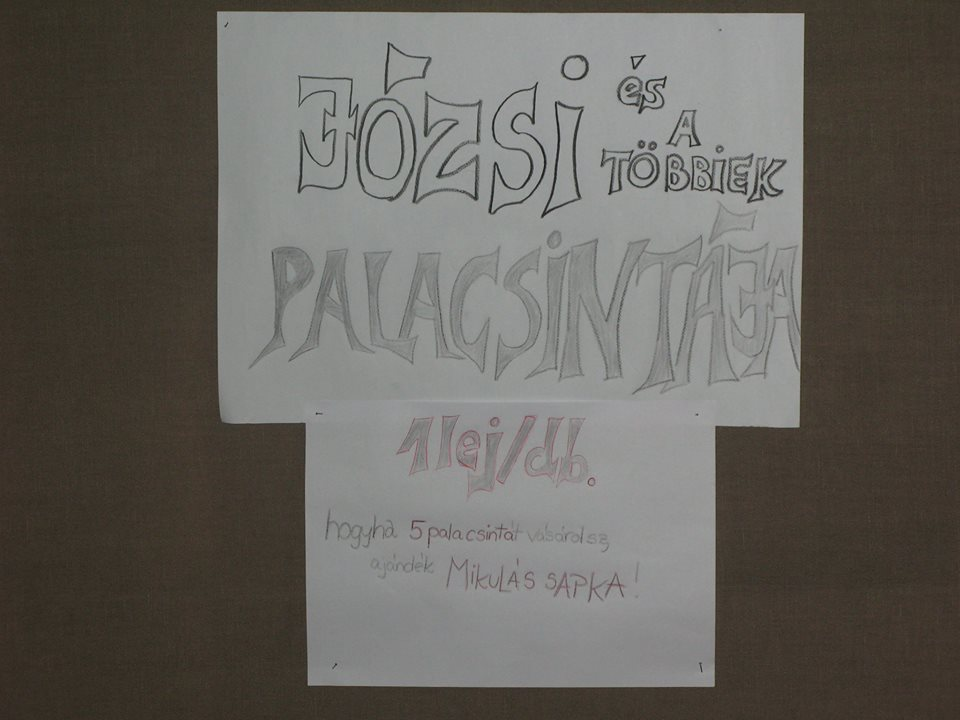 JÓZSI és
A
TÖBBIEK
PALACSINTÁJA
1 lej/db.
hogyha 5 palacsintát vásárolsz,
ajándék MIKULÁS SAPKA!